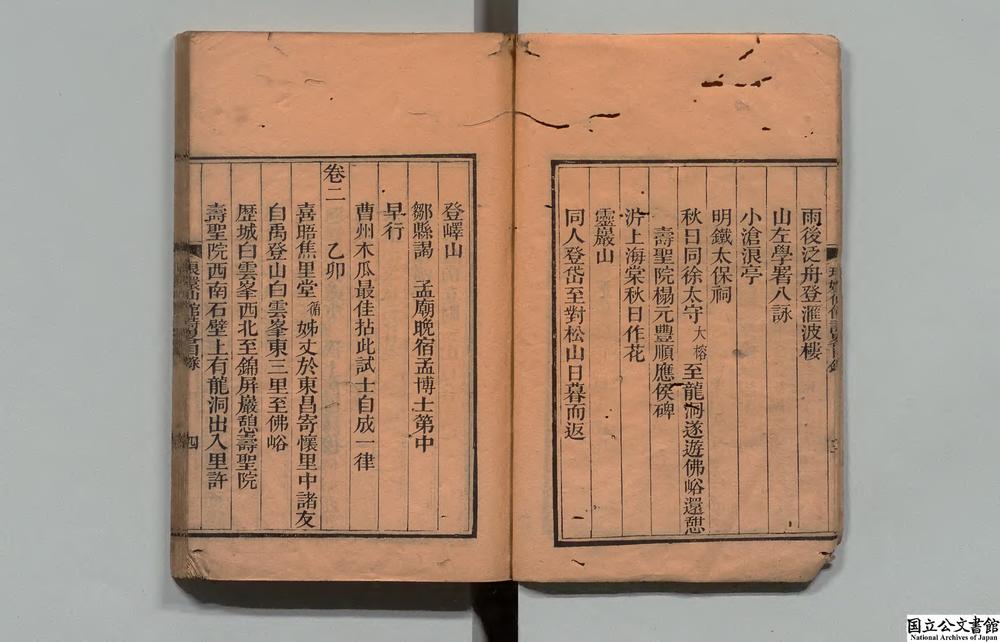 雨後泛舟登滙波樓
山左學署八詠
小滄浪亭
明鐵太保祠
秋日同徐太守大榕至龍洞遂遊佛峪還憇
壽聖院榻元豐順應侯碑
泲上海棠秋日作花
靈巖山
同人登岱至對松山日暮而返
三
登嶧山
鄒縣謁　孟廟晚宿孟博士第中
早行
曹州木瓜最佳拈此試士自成一律
卷二　乙卯
喜晤焦里堂循姊丈於東昌寄懷里中諸友
自禹登山白雲峯東三里至佛峪
歷城白雲峯西北至錦屏巖憩壽聖院
壽聖院西南石壁上有龍洞出入里許
四
国立公文書館
National Archives of Japan